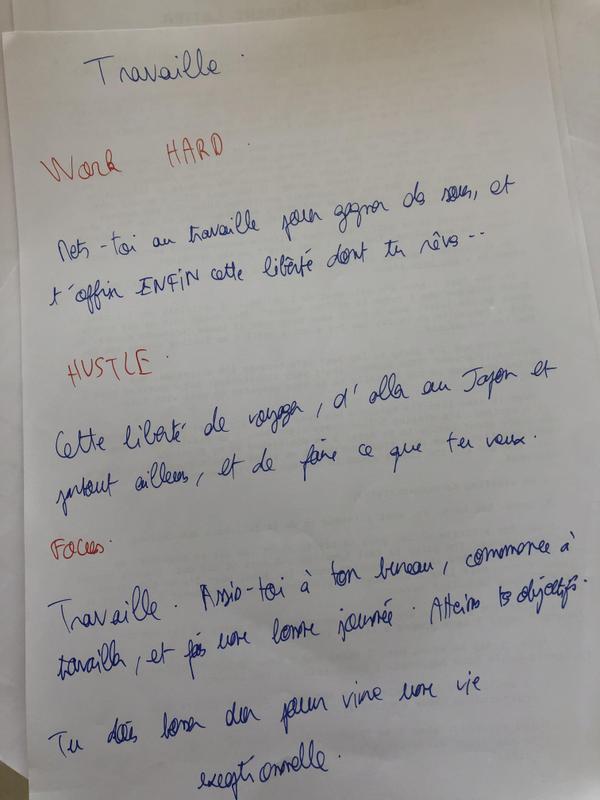 Travaille.
Work HARD.
Mets-toi au travaille pour gagner des sous, et
t'offrir ENFIN cette liberté dont tu rêves..
HUSTLE.
Cette liberté de voyager, d'aller au Japon et
partout ailleurs, et de faire ce que tu veux.
Focus.
Travaille. Assis-toi à ton bureau, commence à
travailler, et fais une bonne journée. Atteins tes objectifs.
Tu dois bosser dur pour vivre une vie
exceptionnelle.